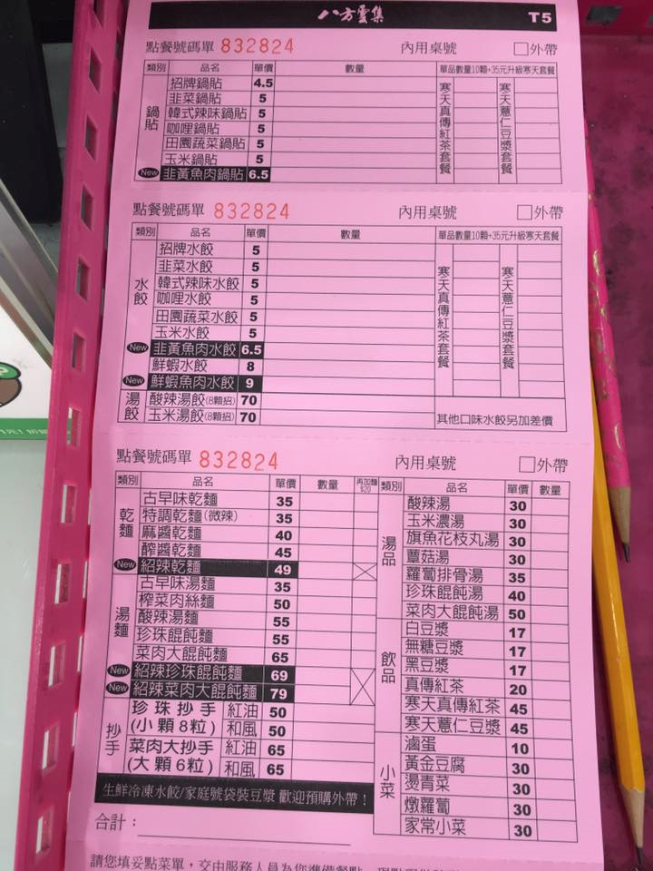 八方雲集 T5
點餐號碼單 832824 內用桌號 □外帶
類別 品名 單價 數量 單品數量10顆+35元升級寒天套餐
鍋貼
招牌鍋貼 4.5
韭菜鍋貼 5
韓式辣味鍋貼 5
咖哩鍋貼 5
田園蔬菜鍋貼 5
玉米鍋貼 5
New 韭黃魚肉鍋貼 6.5
寒天真傳紅茶套餐
寒天薏仁豆漿套餐
點餐號碼單 832824 內用桌號 □外帶
類別 品名 單價 數量 單品數量10顆+35元升級寒天套餐
水餃
招牌水餃 5
韭菜水餃 5
韓式辣味水餃 5
咖哩水餃 5
田園蔬菜水餃 5
玉米水餃 5
New 韭黃魚肉水餃 6.5
鮮蝦水餃 8
New 鮮蝦魚肉水餃 9
湯餃
酸辣湯餃(8顆招) 70
玉米湯餃(8顆招) 70
寒天真傳紅茶套餐
寒天薏仁豆漿套餐
其他口味水餃另加差價
點餐號碼單 832824 內用桌號 □外帶
類別 品名 單價 數量 再加麵$20
乾麵
古早味乾麵 35
特調乾麵(微辣) 35
麻醬乾麵 40
醡醬乾麵 45
New 紹辣乾麵 49
湯麵
古早味湯麵 35
榨菜肉絲麵 50
酸辣湯麵 55
珍珠餛飩麵 55
菜肉大餛飩麵 65
New 紹辣珍珠餛飩麵 69
New 紹辣菜肉大餛飩麵 79
抄手
珍珠抄手 紅油 50
(小顆8粒) 和風 50
菜肉大抄手 紅油 65
(大顆6粒) 和風 65
生鮮冷凍水餃/家庭號袋裝豆漿 歡迎預購外帶!
合計:
類別 品名 單價 數量
湯品
酸辣湯 30
玉米濃湯 30
旗魚花枝丸湯 30
蕈菇湯 30
蘿蔔排骨湯 35
珍珠餛飩湯 40
菜肉大餛飩湯 50
飲品
白豆漿 17
無糖豆漿 17
黑豆漿 17
真傳紅茶 20
寒天真傳紅茶 45
寒天薏仁豆漿 45
小菜
滷蛋 10
黃金豆腐 30
燙青菜 30
燉蘿蔔 30
家常小菜 30
請您填妥點菜單,交由服務人員為您準備餐點